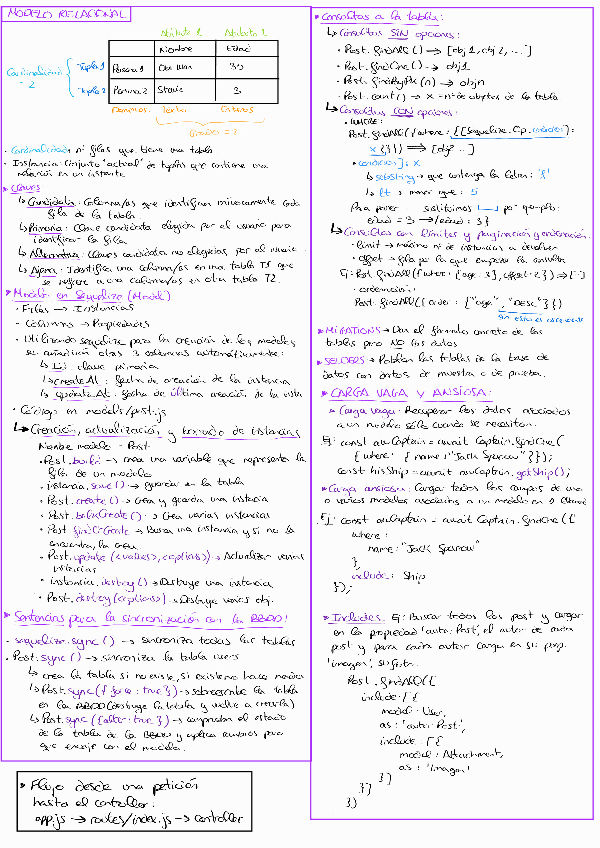 MODELO RELACIONAL
Atributo 1 Atributo 2
Nombre Edad
Cardinalidad = 2
Tupla 1 Persona 1 Obi Wan 33
Tupla 2 Persona 2 Stacie 3
Dominios: Texto Enteros
Grado = 2
· Cardinalidad: nº filas que tiene una tabla
· Instancia: Conjunto "actual" de tuplas que contiene una
relación en un instante
* Claves
↳ Candidata: Columna/os que identifican unívocamente cada
fila de la tabla
↳ Primaria: Clave candidata elegida por el usuario para
identificar la fila
↳ Alternativa: Claves candidatas no elegidas por el usuario
↳ Ajena: Identifica una columna/os en una tabla T1 que
se refiere a una columna/os en otra tabla T2.
* Modelo en Sequelize (Model)
· Filas → Instancias
· Columnas → Propiedades
· Utilizando sequelize para la creación de los modelos
se añadirán otras 3 columnas automáticamente:
↳ id: clave primaria
↳ createAt: fecha de creación de la instancia
↳ updateAt: fecha de última creación de la
· Código en models/post.js
↳ Creación, actualización y borrado de instancias
Nombre modelo - Post
· Post.build → crea una variable que representa la
fila de un modelo
· instancia.save() → guardar en la tabla
· Post.create() → Crea y guarda una instancia
· Post.bulkCreate() → Crea varias instancias
· Post.findOrCreate → Busca una instancia y si no la
encuentra, la crea
· Post.update(<values>, <options>) → Actualizar varias
instancias
· instancia.destroy() → Destruye una instancia
· Post.destroy(<options>) → Destruye varios obj.
* Sentencias para la sincronización con la BBDD:
- sequelize.sync() → sincroniza todas las tablas
· Post.sync() → sincroniza la tabla users
↳ crea la tabla si no existe, si existe no hace nada
↳ Post.sync({force: true}) → sobreescribe la tabla
en la BBDD (destruye la tabla y vuelve a crearla)
↳ Post.sync({alter: true}) → comprueba el estado
de la tabla de la BBDD y aplica cambios para
que encaje con el modelo.
* Flujo desde una petición
hasta el controller:
app.js → routes/index.js → controller
* Consultas a la tabla:
↳ Consultas SIN opciones:
· Post.findAll() → [obj1, obj2, ...]
· Post.findOne() → obj1
· Post.findByPk(n) → objn
· Post.count() → x = nº de objetos de la tabla
↳ Consultas CON opciones:
· WHERE:
Post.findAll({where: {[Sequelize.Op.condicion]:
x}}) ⟹ [obj ...]
· condicion]: x
↳ substring → que contenga la cadena: 'f'
↳ lt → menor que: 5
Para poner = sustituimos [ ] por ejemplo:
edad = 3 → {edad: 3}
↳ Consultas con límites y paginación y ordenación
· limit → máximo nº de instancias a devolver
· offset → fila por la que empezar la consulta
Ej: Post.findAll({where: {age: 3}, offset: 2}) ⟹ [...]
· ordenación:
Post.findAll({order: ["age", "DESC"]})
Sin esto es ascendente
* MIGRATIONS → Dan el formato concreto de las
tablas pero NO los datos
* SEEDERS → Poblan las tablas de la base de
datos con datos de muestra o de prueba.
* CARGA VAGA Y ANSIOSA:
* Carga vaga: Recuperar los datos asociados
a un modelo sólo cuando se necesitan.
Ej: const awCaptain = await Captain.findOne(
{where: {name: "Jack Sparrow"}});
const hisShip = await awCaptain.getShip();
* Carga ansiosa: Cargar todos los campos de uno
o varios modelos asociados a un modelo en
Ej: const awCaptain = await Captain.findOne({
where:
name: "Jack Sparrow"
},
include: Ship
});
* Includes. Ej: Buscar todos los post y cargar
en la propiedad 'autorPost', el autor de cada
post y para cada autor cargar en su prop.
'imagen', su foto.
Post.findAll({
include: [{
model: User,
as: 'autorPost',
include: [{
model: Attachment,
as: 'imagen'
}]
}]
})